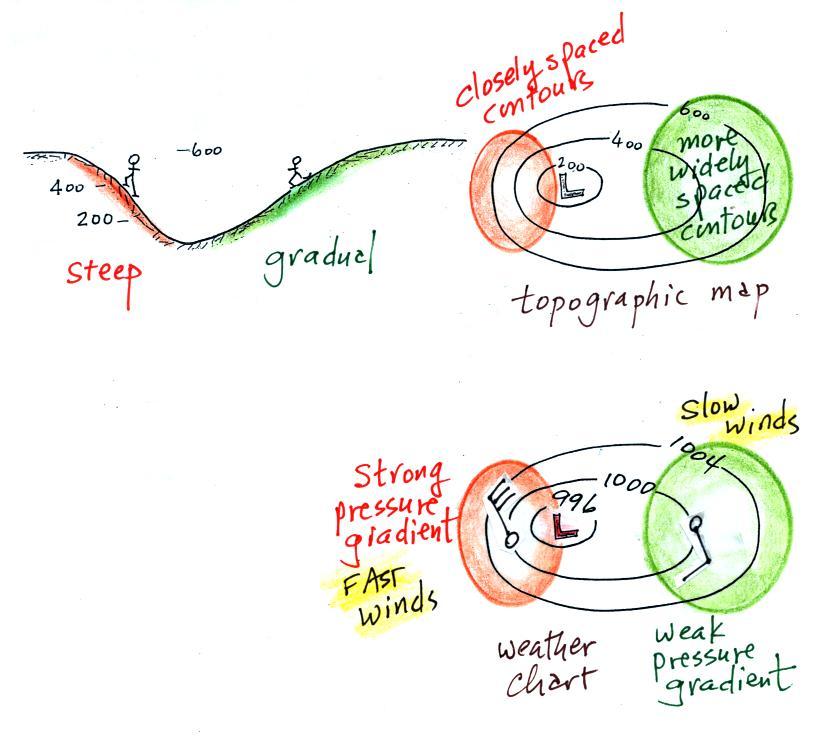 closely spaced
contours
-600
400
200
steep
gradual
600
400
200
L
more
widely
spaced
contours
topographic map
Slow
winds
1004
1000
996
L
Strong
pressure
gradient
FAST
winds
weather
chart
weak
pressure
gradient